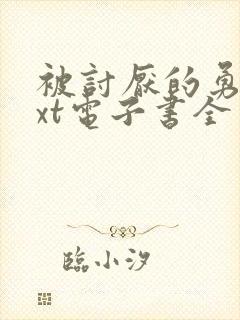 被討厭的勇
xt電子書全
臨小汐